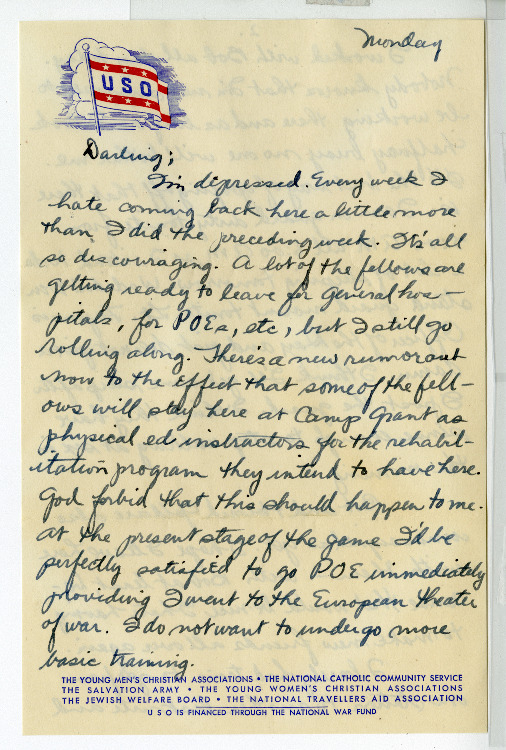 Monday
USO
Darling;
I'm depressed. Every week I
hate coming back here a little more
than I did the preceding week. It's all
so discouraging. A lot of the fellows are
getting ready to leave for General hos-
pitals, for POEs, etc, but I still go
rolling along. There's a new rumor out
now to the effect that some of the fell-
ows will stay here at Camp Grant as
physical ed instructors for the rehabil-
itation program they intend to have here.
God forbid that this should happen to me.
At the present stage of the game I'd be
perfectly satisfied to go POE immediately
providing I went to the European theater
of war. I do not want to undergo more
basic training.
THE YOUNG MEN'S CHRISTIAN ASSOCIATIONS • THE NATIONAL CATHOLIC COMMUNITY SERVICE
THE SALVATION ARMY • THE YOUNG WOMEN'S CHRISTIAN ASSOCIATIONS
THE JEWISH WELFARE BOARD • THE NATIONAL TRAVELLERS AID ASSOCIATION
USO IS FINANCED THROUGH THE NATIONAL WAR FUND